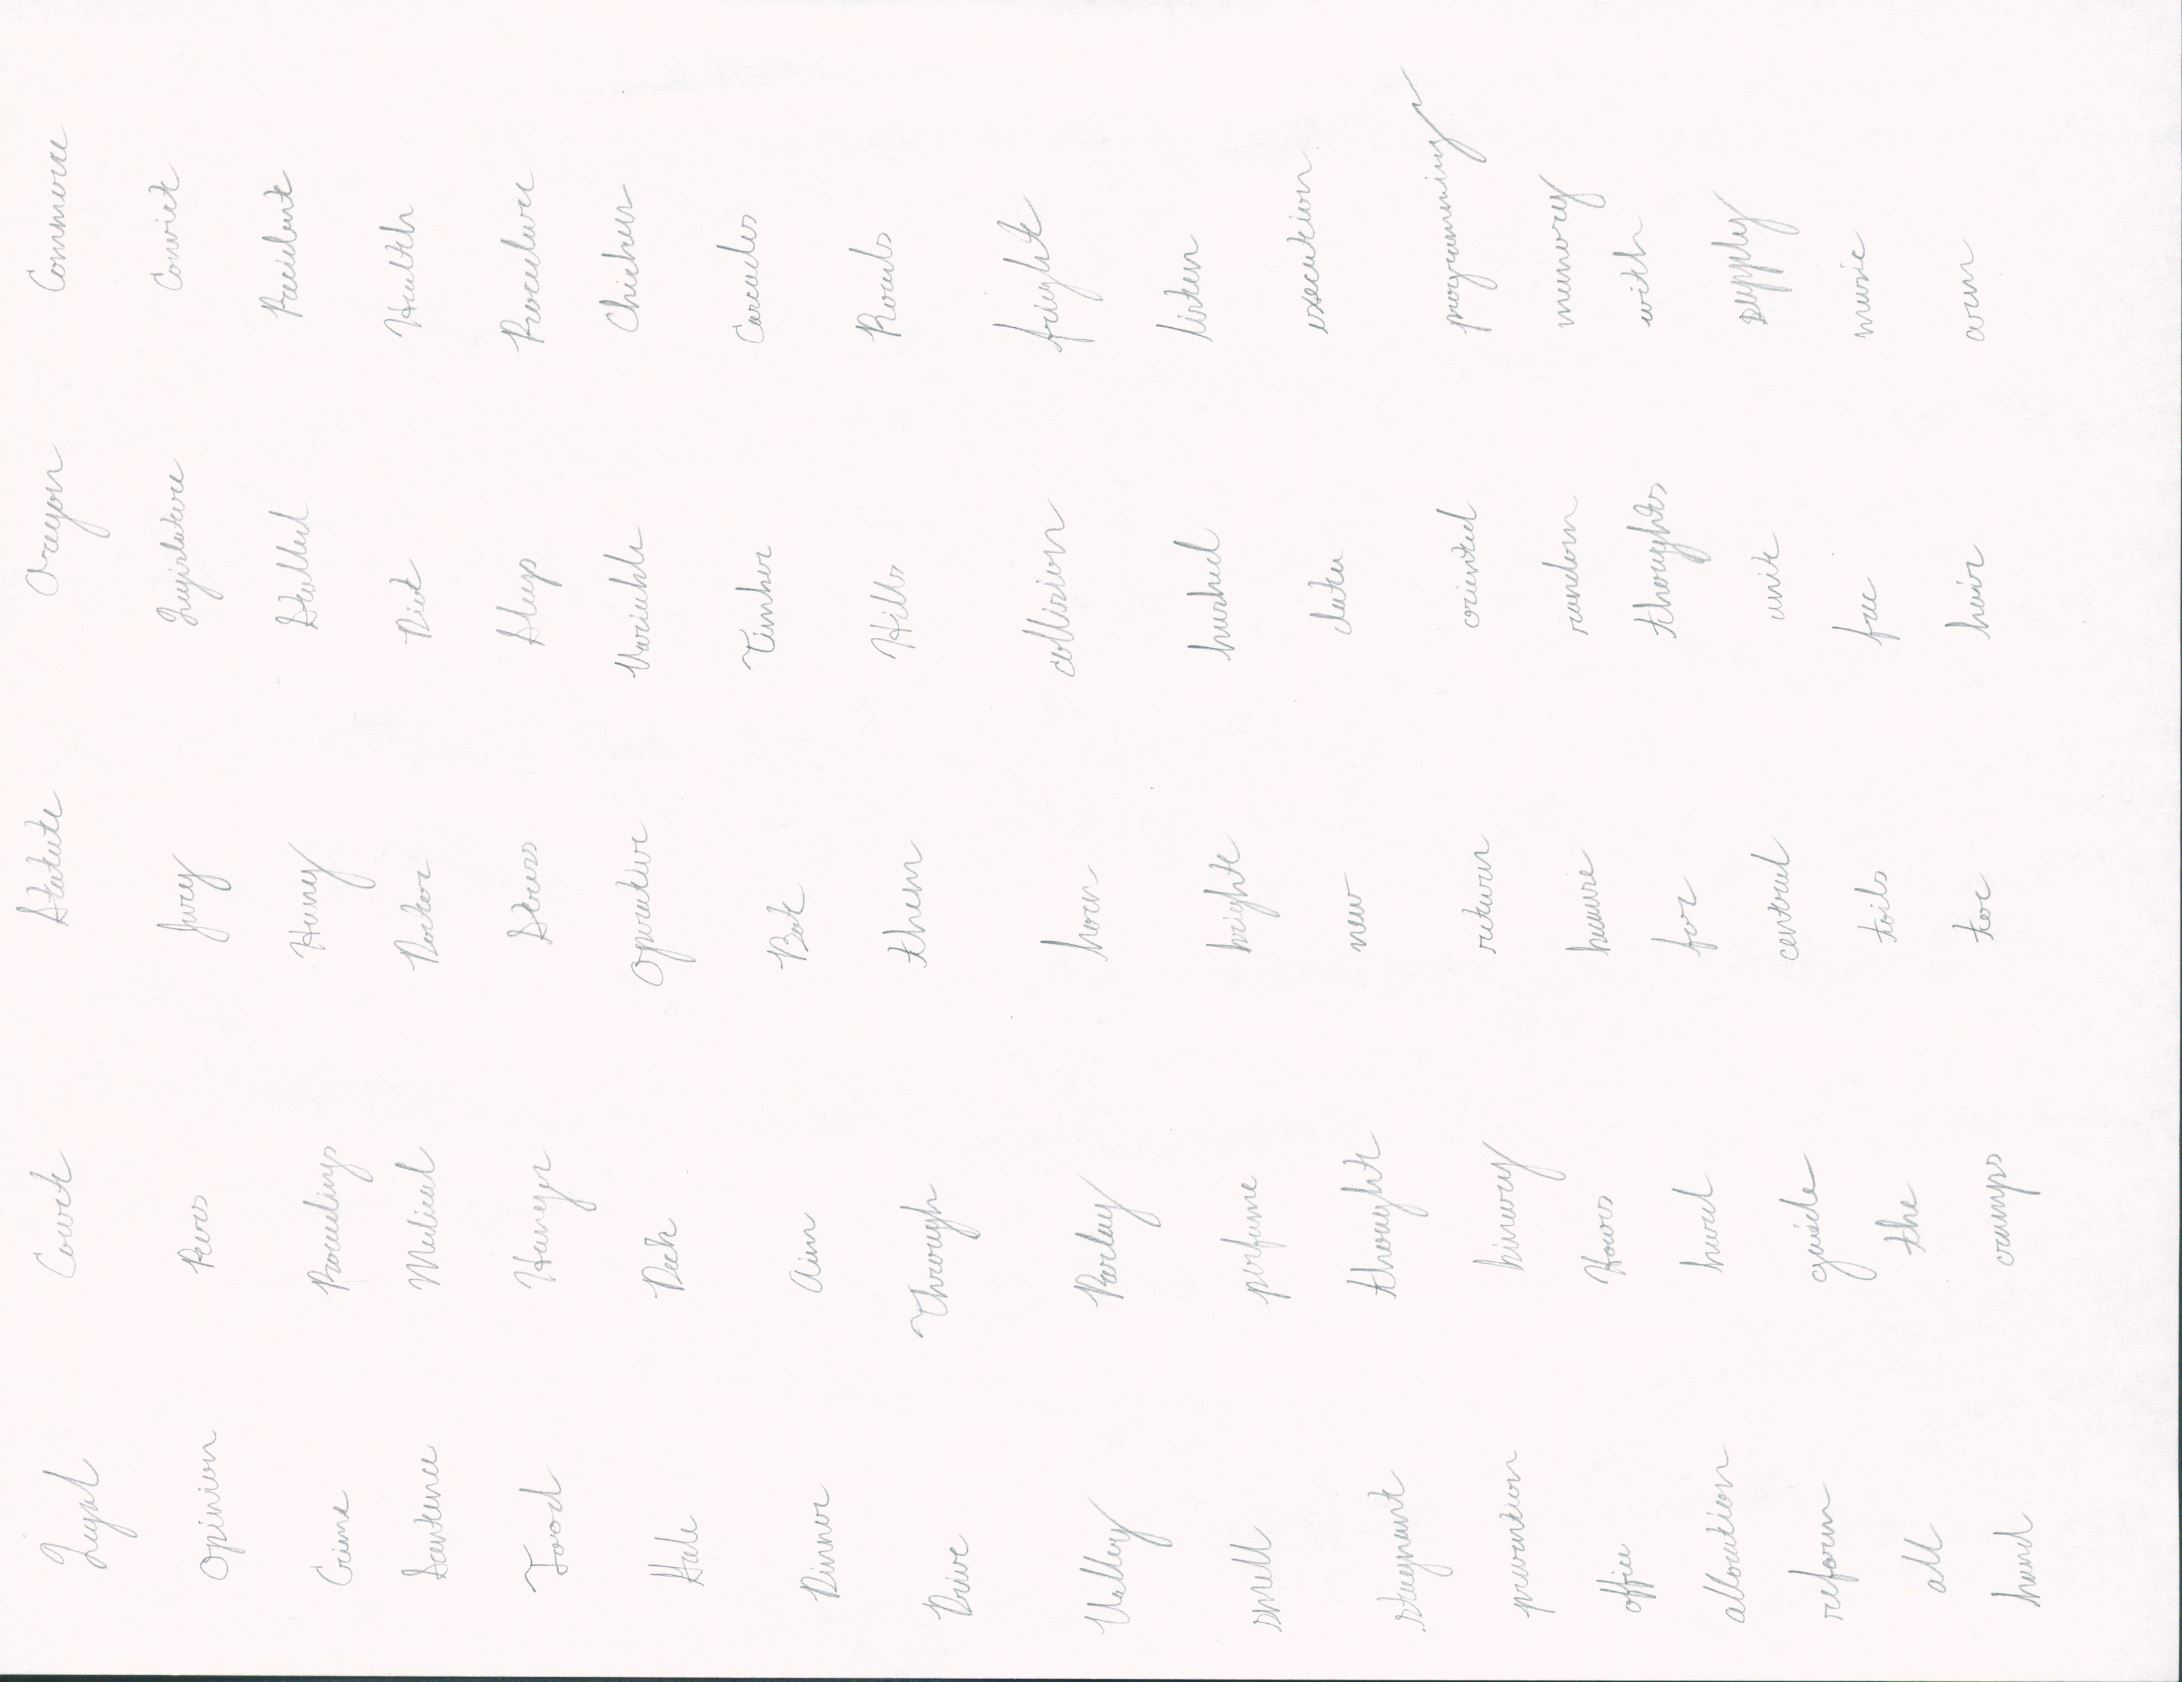 Legal Court Statute Oregon Commerce
Opinion Peers Jury Legislature Convict
Crime Proceedings Heavy Stalled President
Sentence Medical Doctor Diet Health
Food Hunger Stress Sleep Procedure
Stale Deck Operative Variable Chicken
Dinner Aim Bat Timber Cascades
Drive Through them Hills Roads
Valley Parley horn collision freight
smell perfume bright hushed listen
stagnant thought new data execution
prevention binary return oriented programming
office Hours hearse random memory
allocation heard for thoughts with
reform guide central unit supply
all the toils fae music
hand cramps toe hair arm